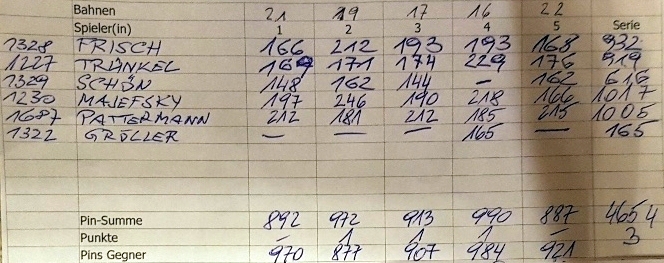 Bahnen 21 19 17 16 22
Spieler(in) 1 2 3 4 5 Serie
1328 FRISCH 166 212 193 193 168 932
1227 TRÜNKEL 169 171 174 229 176 919
1329 SCHÖN 148 162 144 – 162 616
1230 MAIEFSKY 197 246 190 218 166 1017
1687 PATTERMANN 212 181 212 185 215 1005
1322 GRÖLLER – – – 165 – 165
Pin-Summe 892 972 913 990 887 4654
Punkte – 1 1 1 – 3
Pins Gegner 970 877 907 984 921